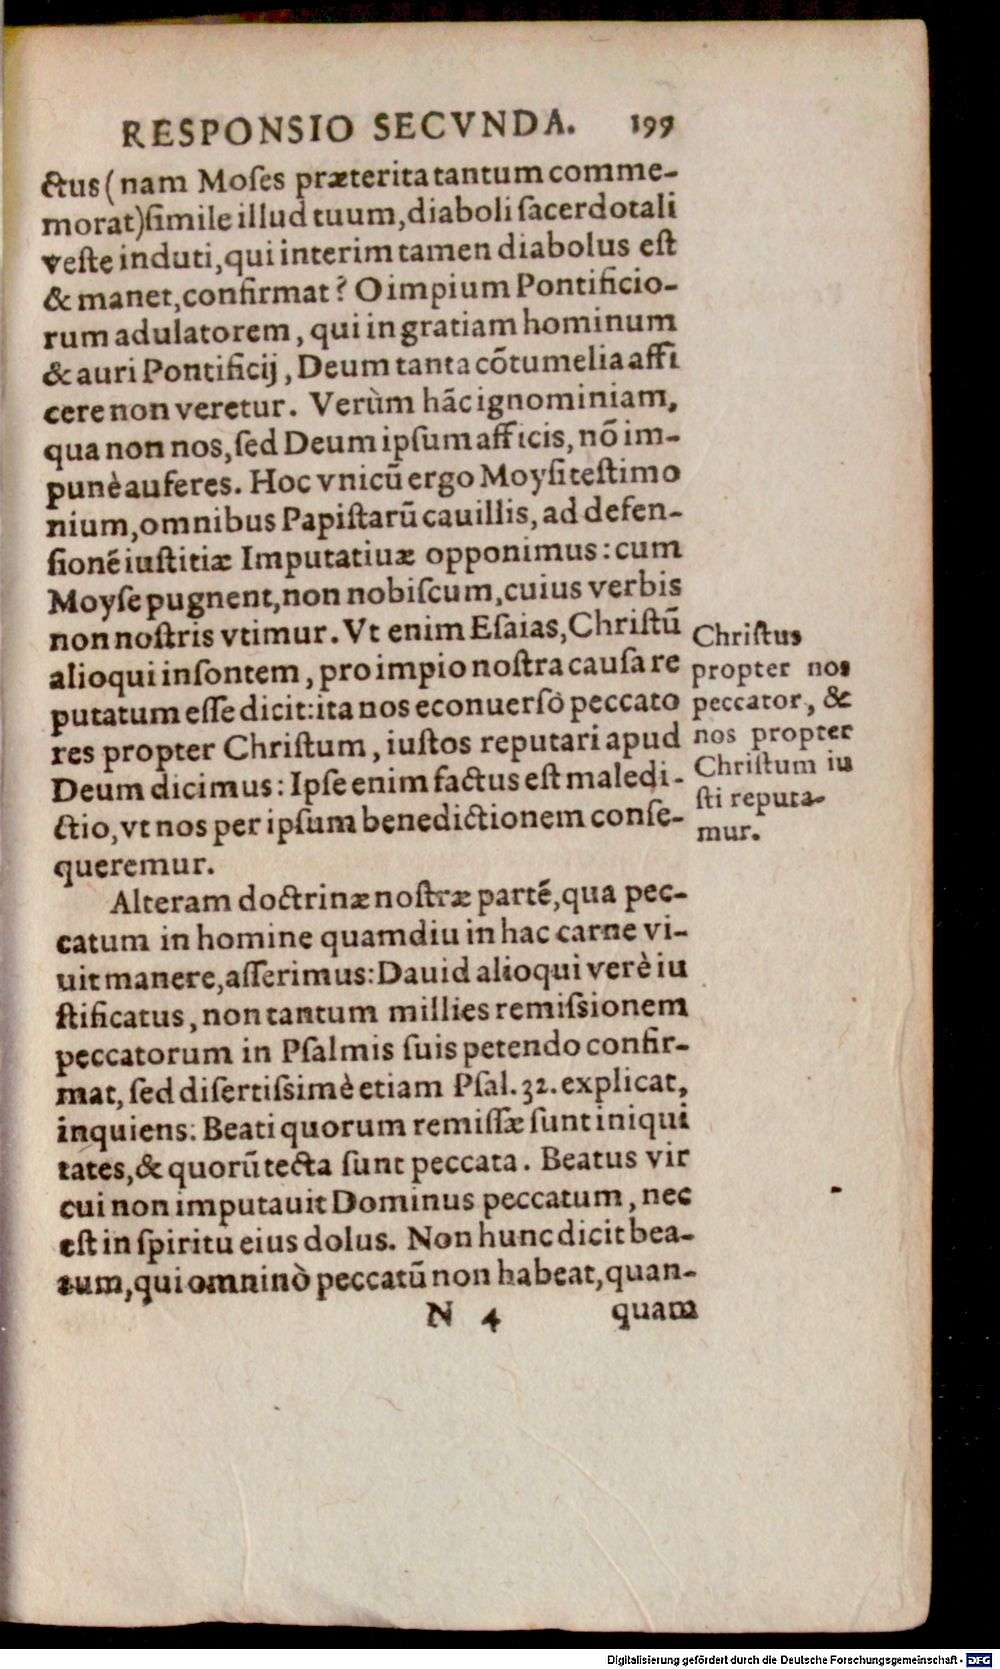 RESPONSIO SECVNDA. 199
ctus (nam Moſes præterita tantum comme-
morat) ſimile illud tuum, diaboli ſacerdotali
veſte induti, qui interim tamen diabolus eſt
& manet, confirmat? O impium Pontificio-
rum adulatorem, qui in gratiam hominum
& auri Pontificij, Deum tanta cõtumelia affi
cere non veretur. Verùm hãc ignominiam,
qua non nos, ſed Deum ipſum afficis, nõ im-
punè auferes. Hoc vnicũ ergo Moyſi teſtimo
nium, omnibus Papiſtarũ cauillis, ad defen-
ſionẽ iuſtitiæ Imputatiuæ opponimus: cum
Moyſe pugnent, non nobiſcum, cuius verbis
non noſtris vtimur. Vt enim Eſaias, Chriſtũ
alioqui inſontem, pro impio noſtra cauſa re
putatum eſſe dicit: ita nos econuerſò peccato
res propter Chriſtum, iuſtos reputari apud
Deum dicimus: Ipſe enim factus eſt maledi-
ctio, vt nos per ipſum benedictionem conſe-
queremur.
Chriſtus
propter nos
peccator, &
nos propter
Chriſtum iu
ſti reputa-
mur.
Alteram doctrinæ noſtræ partẽ, qua pec-
catum in homine quamdiu in hac carne vi-
uit manere, aſſerimus: Dauid alioqui verè iu
ſtificatus, non tantum millies remiſsionem
peccatorum in Pſalmis ſuis petendo confir-
mat, ſed diſertiſsimè etiam Pſal. 32. explicat,
inquiens: Beati quorum remiſſæ ſunt iniqui
tates, & quorũ tecta ſunt peccata. Beatus vir
cui non imputauit Dominus peccatum, nec
eſt in ſpiritu eius dolus. Non hunc dicit bea-
tum, qui omninò peccatũ non habeat, quan-
N 4 quam
Digitalisierung gefördert durch die Deutsche Forschungsgemeinschaft - DFG